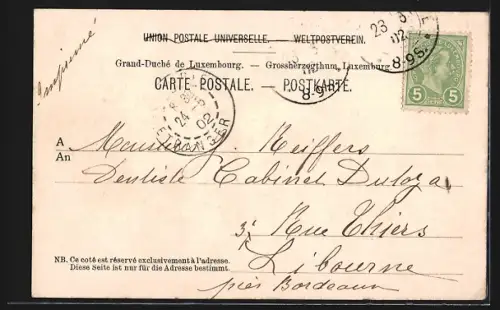 Imprimé
UNION POSTALE UNIVERSELLE. — WELTPOSTVEREIN.
Grand-Duché de Luxembourg. — Grossherzogthum Luxemburg.
CARTE POSTALE. — POSTKARTE.
23 5
02
8-9S.
8-9
5 5
24
02
ETRANGER
A Monsieur J. Reiffers
An
Dentiste Cabinet
3, Rue Thiers
Libourne
près Bordeaux
NB. Ce coté est réservé exclusivement à l'adresse.
Diese Seite ist nur für die Adresse bestimmt.